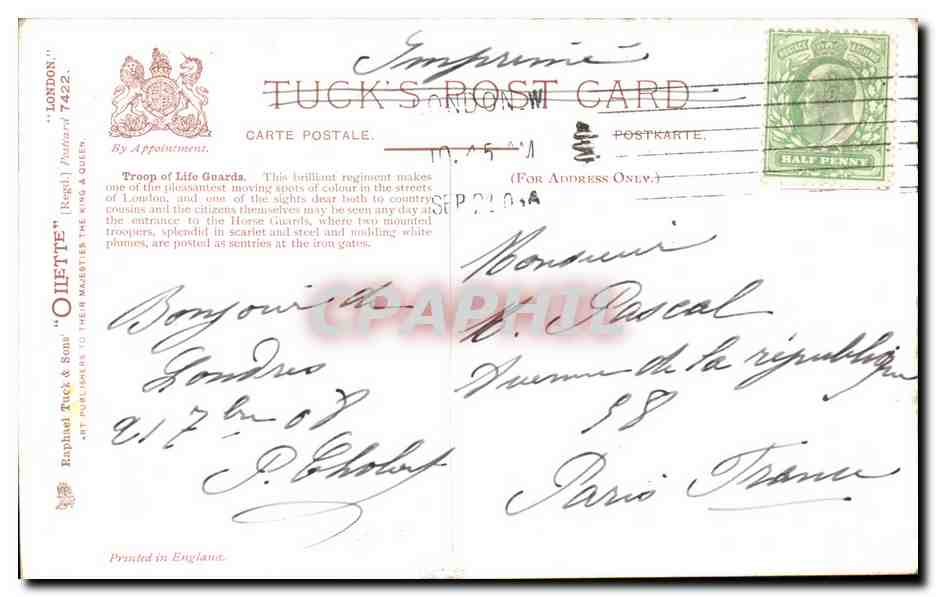 Imprimé
TUCK'S POST CARD
CARTE POSTALE.
POSTKARTE.
By Appointment.
(FOR ADDRESS ONLY.)
HALF PENNY
POSTAGE & REVENUE
LONDON W
10.45 AM
SEP 21 08
Troop of Life Guards. This brilliant regiment makes
one of the pleasantest moving spots of colour in the streets
of London, and one of the sights dear both to country
cousins and the citizens themselves may be seen any day at
the entrance to the Horse Guards, where two mounted
troopers, splendid in scarlet and steel and nodding white
plumes, are posted as sentries at the iron gates.
Bonjour de
Londres
21 7bre 08
P.
Monsieur
H. Pascal
Avenue de la république
98
Paris France
Printed in England.
Raphael Tuck & Sons' "OILETTE" [Regd.] Postcard 7422.
"LONDON."
ART PUBLISHERS TO THEIR MAJESTIES THE KING & QUEEN.
CPAPHIL